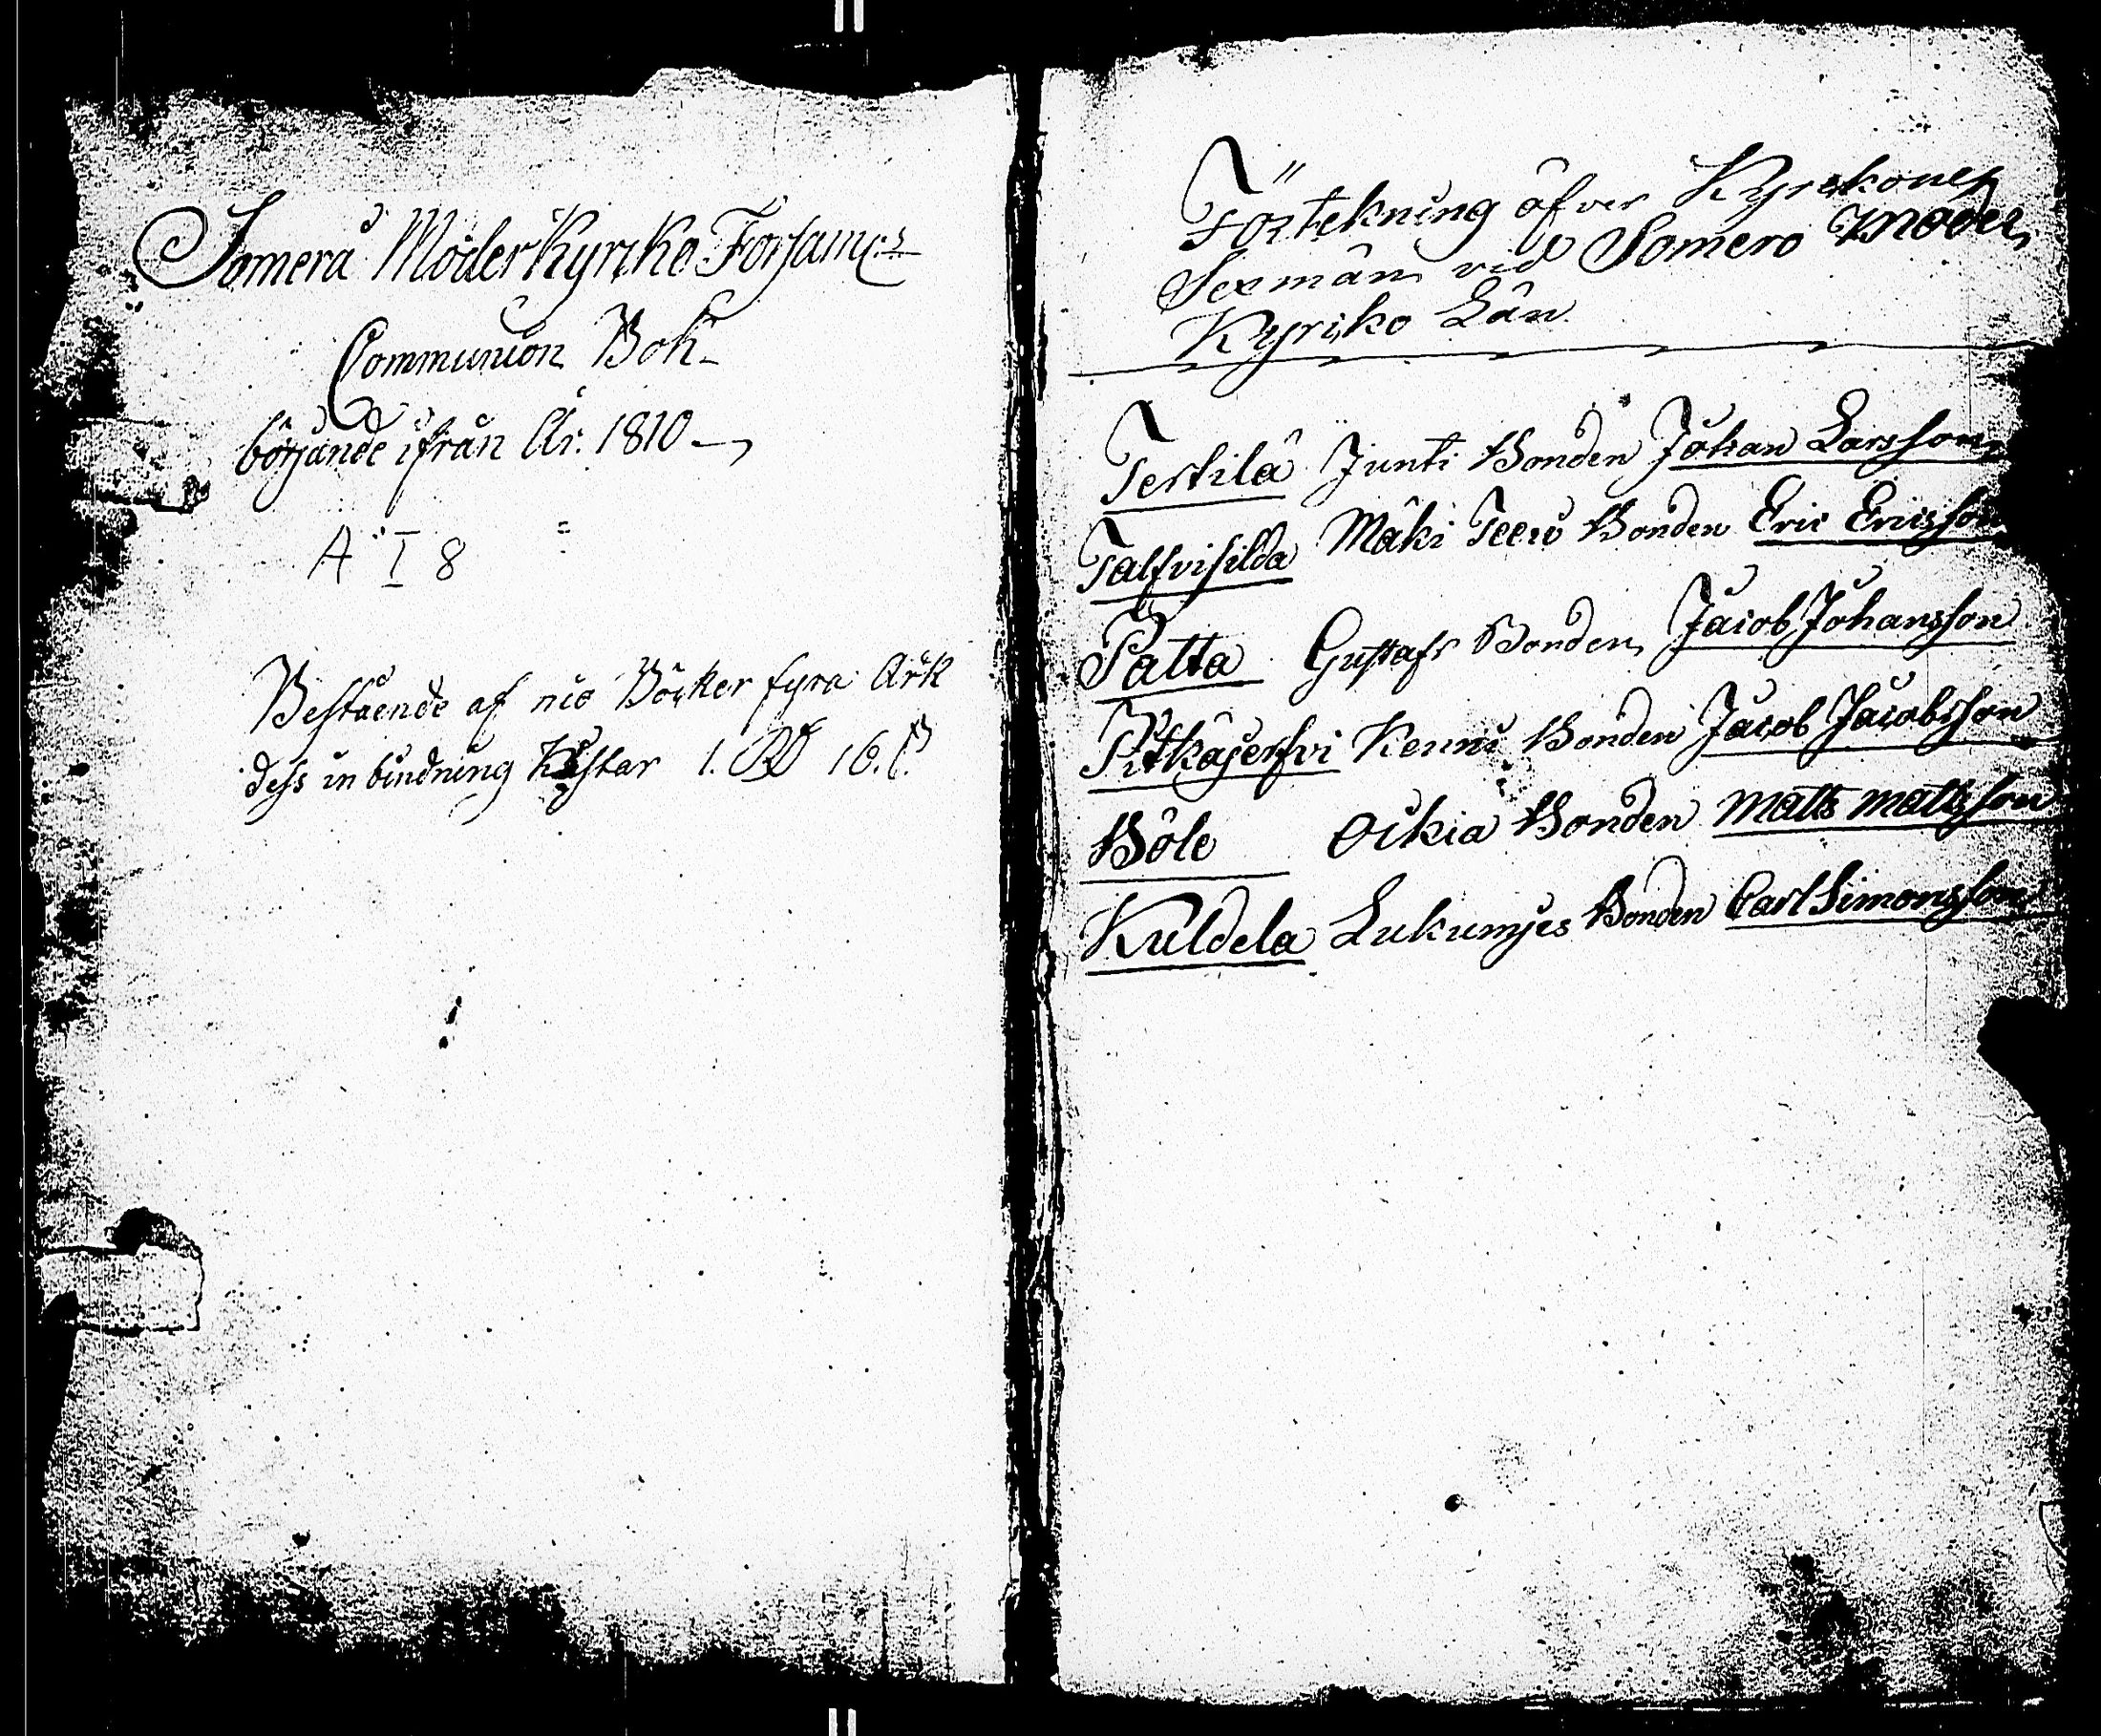 Somerå Moder Kyrcko Församl:s
Communion Bok
börjande ifrån År. 1810
A I 8
Bestående af nio Böcker fyra Ark
dess in bindning Kostar 1. Rd 16. ß
Förtekning öfver Kyrckones
Sexmän vid Somero Moder
Kyriko Län
Terttilä Junti Bonden Johan Larsson
Talfvisilda Mäki Teeri Bonden Eric Ericsson
Palta Gustafs Bonden Jacob Johansson
Pitkäjerfvi Kenni Bonden Jacob Jacobsson
Böle Oikia Bonden Matts Mattsson
Kuldela Bonden Carl Simonsson